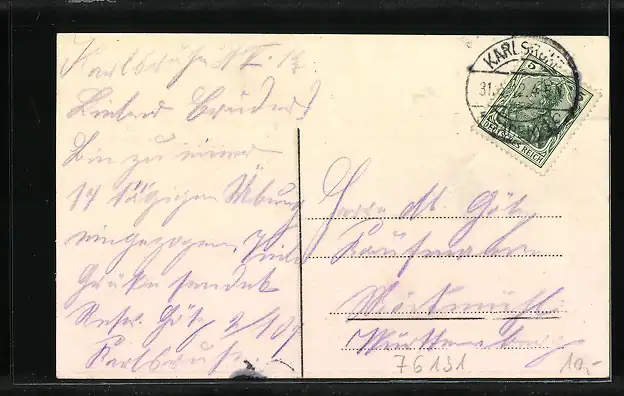 Karlsruhe
Lieber Bruder!
Bin zu einer
14 tägigen Übung
eingezogen. Viele
Grüße sendet
Resv. Götz 2/109
Karlsruhe.
KARLSRUHE
DEUTSCHES REICH
Herrn Götz
Kaufmann
Möckmühl
Württemberg
76131
10,-